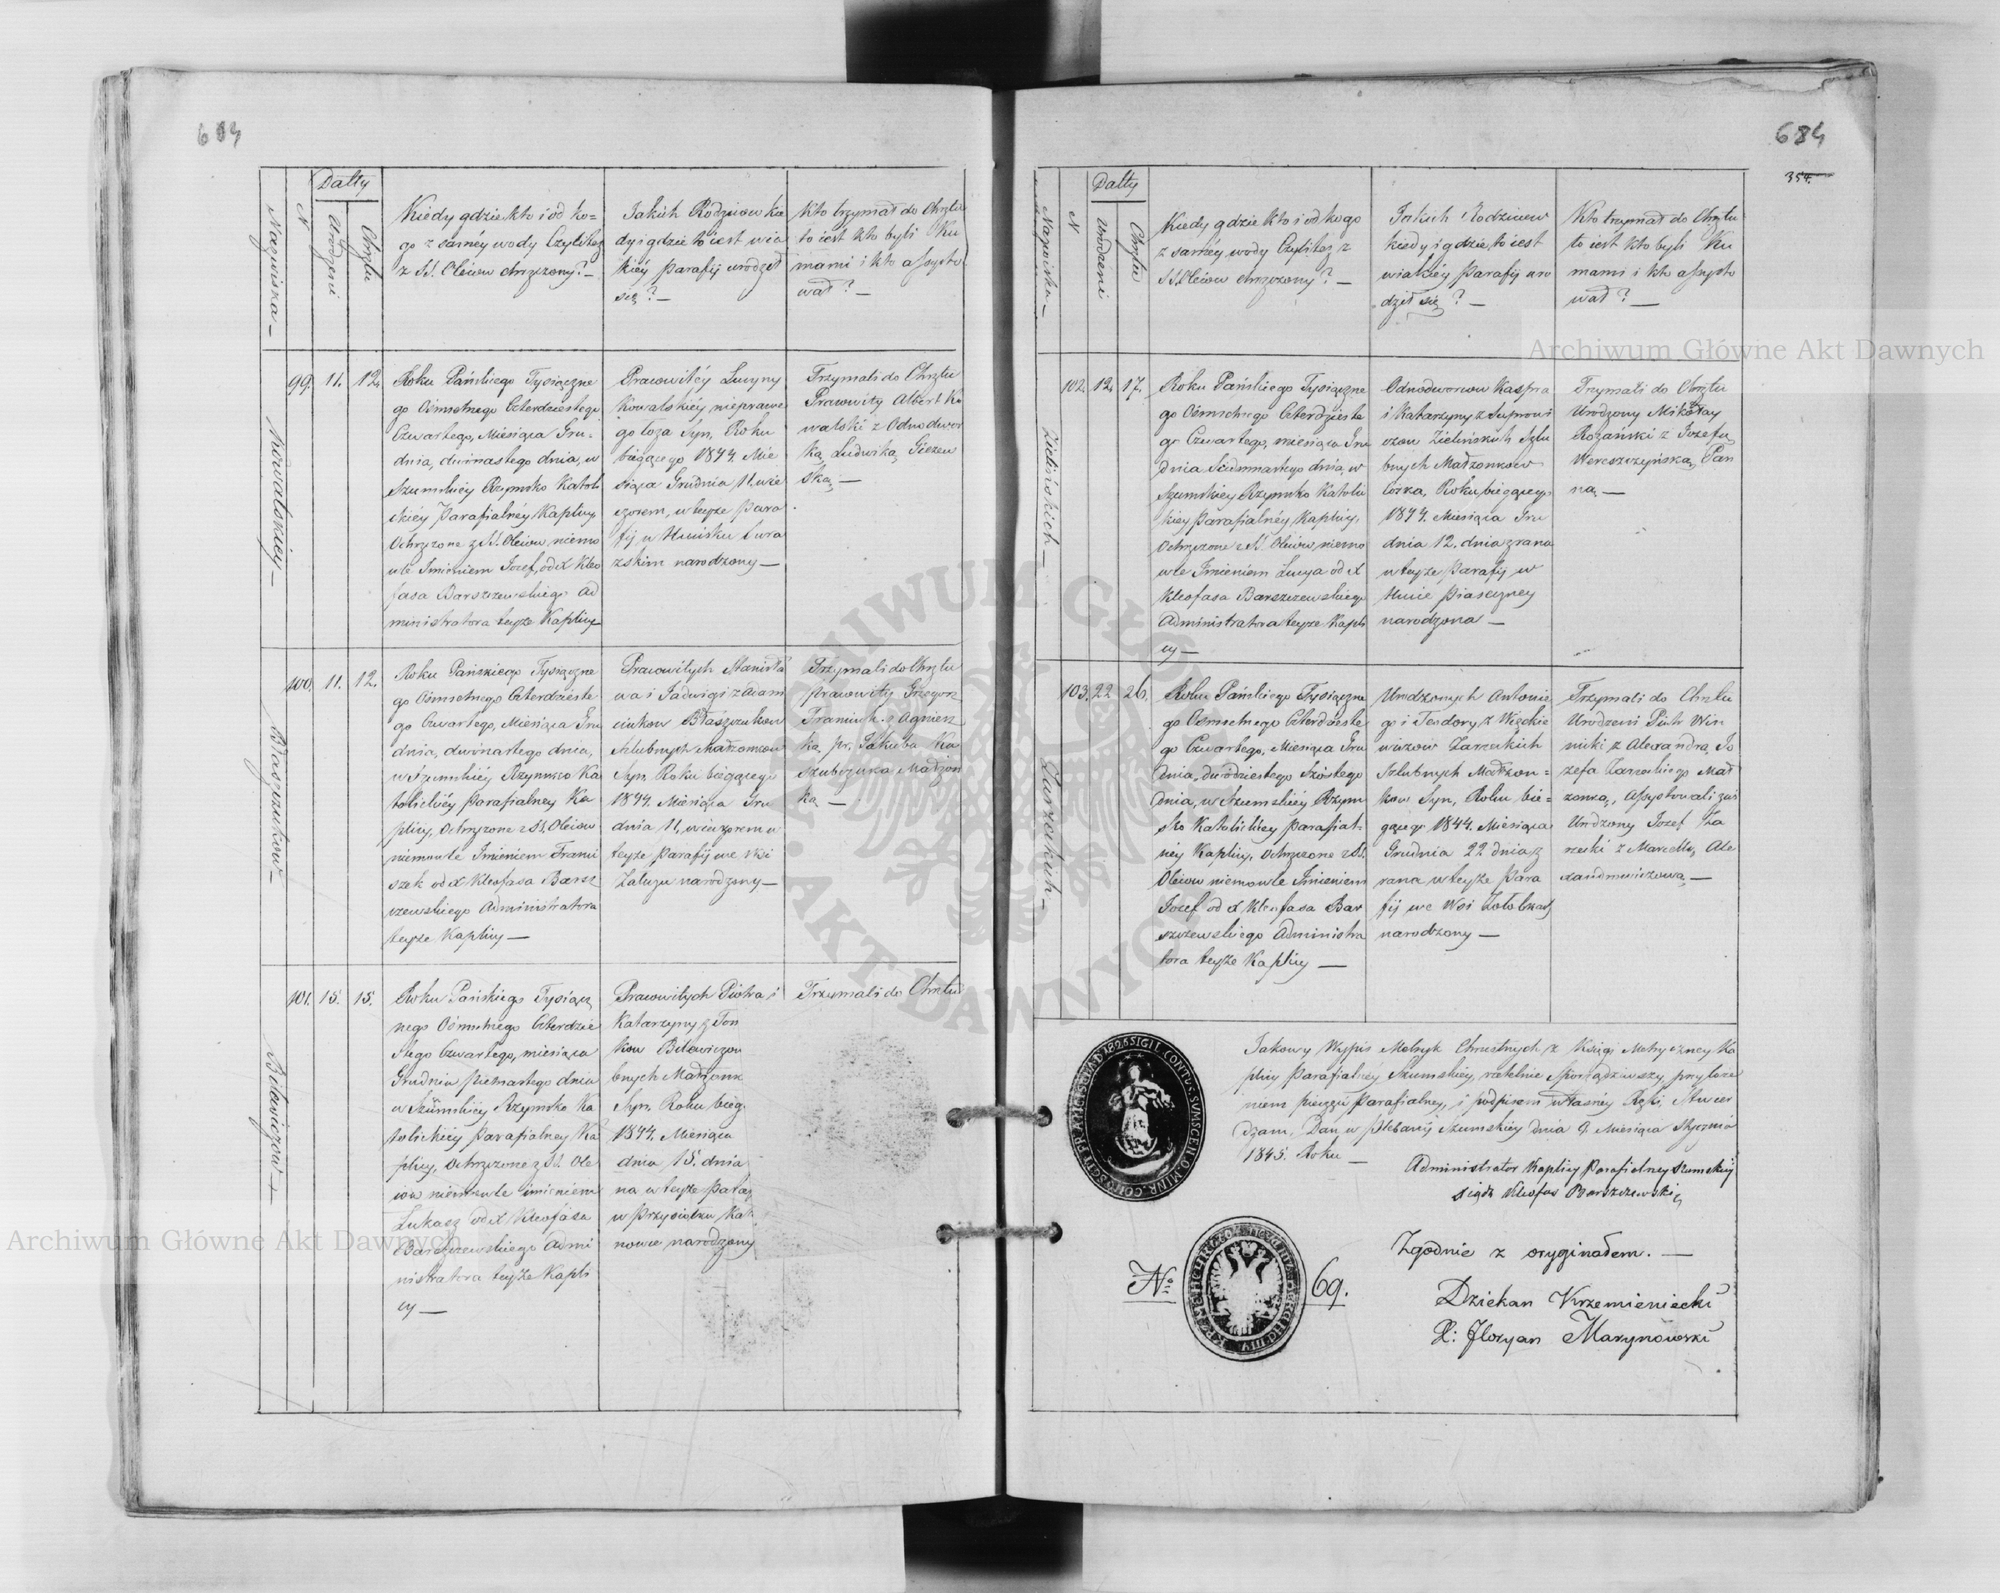 684
Datty
Nazwiska —
N
Urodzeni
Chrztu
Kiedy gdzie kto i od ko=
go z samey wody Czylitez
z SS. Oleiow chrzczony? —
Jakich Rodzicow kie
dy i gdzie to iest w ia
kiéy Parafij urodził
się? —
Kto trzymał do Chrztu
to iest kto byli Ku
mami i kto assysto
wał? —
Kowalskiéy —
99. 11. 12.
Roku Pańskiego Tysiączne
go Ośmsetnego Czterdziestego
Czwartego, Miesiąca Gru-
dnia, dwónastego dnia, w
Szumskiéy Rzymsko Katoli
ckiéy Parafialnéy Kaplicy
Ochrzczone z SS. Oleiow niemo
wle Imieniem Jozef, od X Kleo
fasa Barszczewskiego Ad
ministratora teyże Kaplicy
Pracowitéy Lucyny
Kowalskiéy niepraw
go łoża Syn, Roku
biegącego 1844. Mie
siąca Grudnia 11. wie
czorem, w teyże Para
fij w Hucisku
narodzony —
Trzymali do Chrztu
Pracowity Albert Ko
walski z Odnodwor
ką Ludwiką
ską —
Błaszczukow —
100. 11. 12.
Roku Pańskiego Tysiączne
go Ośmsetnego Czterdzieste
go Czwartego, Miesiąca Gru
dnia, dwónastego dnia,
w Szumskiéy Rzymsko Ka
tolickiéy Parafialney Ka
plicy, Ochrzczone z SS. Oleiow
niemowle Imieniem Franci
szek od X Kleofasa Barsz
czewskiego Administratora
teyże Kaplicy —
Pracowitych Stanisła
wa i Jadwigi z Adam
ciukow Błaszczukow
Slubnych Małżonkow
Syn, Roku biegącego
1844. Miesiąca Gru
dnia 11. wieczorem w
teyże Parafij we Wsi
Załużu narodzony —
Trzymali do Chrztu
pracowity Grzegorz
Franiuk z Agniesz
ką, pr. Jakuba Ka
szubczuka Małżon
ką —
Bilewiczow —
101. 15. 15.
Roku Pańskiego Tysiącz
nego Ośmsetnego Czterdzie
stego Czwartego, miesiąca
Grudnia pietnastego dnia
w Szumskiéy Rzymsko Ka
tolickiéy Parafialney Ka
plicy, Ochrzczone z SS. Ole
iow niemowle imieniem
Łukasz od X Kleofasa
Barszczewskiego Admi
nistratora teyże Kapli
cy —
Pracowitych Piotra i
Katarzyny z Tom
kow Bilewiczow
bnych Małżonk
Syn, Roku bieg
1844. Miesiąca
dnia 15. dnia
na w teyże Para
w Przysiołku Kat
nowie narodzony
Trzymali do Chrztu
684
354.
Datty
Nazwiska —
N
Urodzeni
Chrztu
Kiedy gdzie kto i od kogo
z samey wody Czylitez z
SS. Oleiow chrzczony? —
Jakich Rodzicow
kiedy i gdzie to iest
w iakiéy Parafij uro
dził się? —
Kto trzymał do Chrztu
to iest kto byli Ku
mami i kto assysto
wał? —
Zielińskich —
102. 12. 17.
Roku Pańskiego Tysiączne
go Ośmsetnego Czterdzieste
go Czwartego, miesiąca Gru
dnia Siedmnastego dnia, w
Szumskiey Rzymsko Katolic
kiey Parafialnéy Kaplicy,
Ochrzczone z SS. Oleiow niemo
wle Imieniem Lucya od X
Kleofasa Barszczewskiego
Administratora teyże Kapli
cy —
Odnodworcow Kaspra
i Katarzyny z Suprowi
czow Zielińskich Szlu
bnych Małżonkow
Corka, Roku biegącego
1844. Miesiąca Gru
dnia 12. dnia z rana
w teyże Parafij w
Hucie Piasczney
narodzona —
Trzymali do Chrztu
Urodzony Mikołay
Rożański z Jozefą
Wereszczyńską Pan
ną —
Zarzeckich —
103. 22 26.
Roku Pańskiego Tysiączne
go Ośmsetnego Czterdzieste
go Czwartego, Miesiąca Gru
dnia, dwódziestego Szóstego
dnia, w Szumskiéy Rzym
sko Katolickiey parafial
néy Kaplicy, Ochrzczone z SS.
Oleiow niemowle Imieniem
Jozef od X Kleofasa Bar
szczewskiego Administra
tora teyże Kaplicy —
Urodzonych Antonie
go i Teodory z Więckie
wiczow Zarzeckich
Szlubnych Małżon=
kow Syn, Roku bie=
gącego 1844. Miesiąca
Grudnia 22 dnia z
rana w teyże Para
fij we Wsi
narodzony —
Trzymali do Chrztu
Urodzeni Piotr Win
nicki z Alexandrą Jo
zefa Zarzeckiego Mał
żonką, Assystowali zaś
Urodzony Jozef Za
rzecki z Marcellą Ale
xandrowiczową —
Jakowy Wypis Metryk Chrestnych z Księgi Metryczney Ka
plicy Parafialney Szumskiey, rzetelnie sporządziwszy, przyłoże
niem pieczęci Parafialney, i podpisem własnéy Ręki, Stwier
dzam, Dan w Plebanij Szumskiey dnia 9. Miesiąca Stycznia
1845. Roku —
Administrator Kaplicy Parafialney Szumskiey
Xiądz Kleofas Barszczewski
Zgodnie z oryginałem. —
Nro 69.
Dziekan Krzemieniecki
X: Floryan Marynowski
Archiwum Główne Akt Dawnych
Archiwum Główne Akt Dawnych
ARCHIWUM GŁÓWNE AKT DAWNYCH